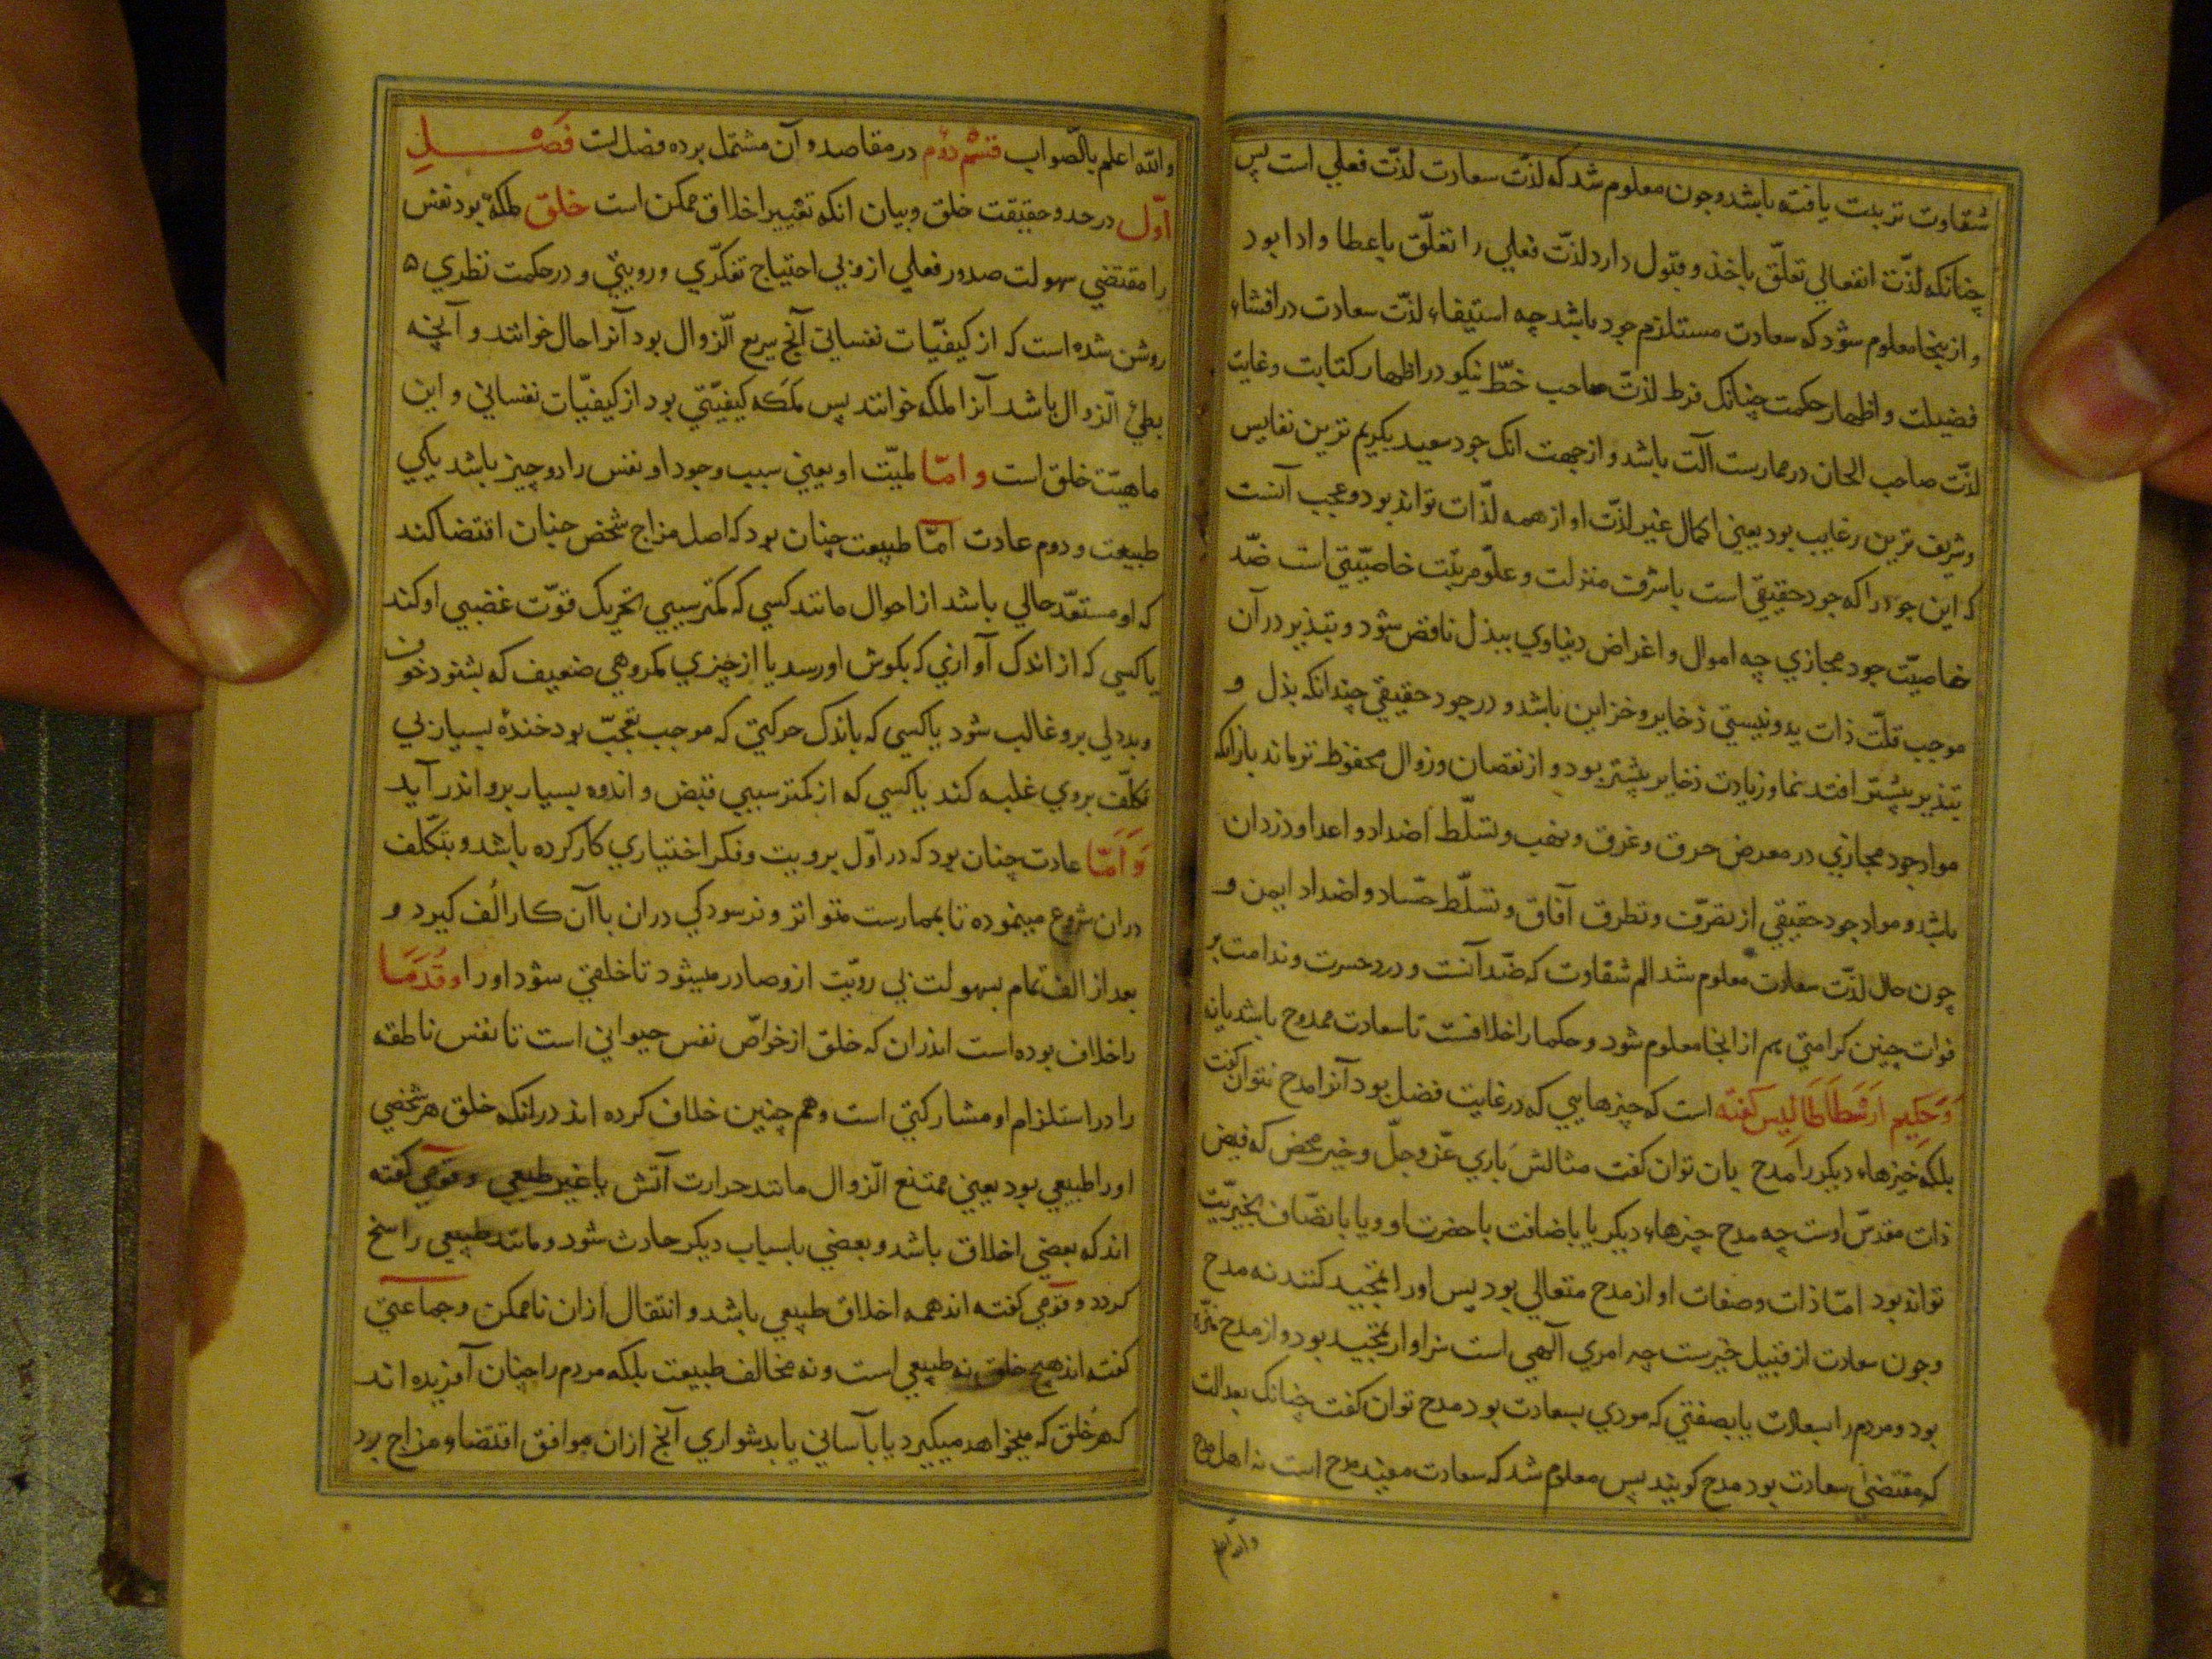 شقاوت تربیت یافته باشد وجون معلوم شد که لذّت سعادت لذّت فعلي است پس
چنانکه لذّت انفعالي تعلّق باخذ و قبول دارد لذّت فعلي را تعلّق باعطا و ادا بود
و ازینجا معلوم شود که سعادت مستلزم جود باشد چه استیفاء لذّت سعادت در افشاء
فضیلت و اظهار حکمت چنانک فرط لذّت صاحب خطّ نیکو در اظهار کتابت وغایت
لذّت صاحب الحان در ممارست آلت باشد و از جهت انک جود سعید بکریم ترین نفایس
وشریف ترین رغایب بود یعني اکمال غیر لذّت او از همه لذّات تواند بود وعجب آنست
که این جود را که جود حقیقي است باشرف منزلت و علوّ مرتبت خاصیّتي است ضدّ
خاصیّت جود مجازي چه اموال و اغراض دنیاوي ببذل ناقص شود و تبذیر در آن
موجب قلّت ذات ید ونیستي ذخایر وخزاین باشد و در جود حقیقي چندانکه بذل و
تبذیر بیشتر افتد نما و زیادت ذخایر بیشتر بود و از نقصان وزوال محفوظ تر ماند بازانکه
مواد جود مجازي در معرض حرق وغرق ونهب وتسلّط اضداد و اعدا و دزدان
باشد و مواد جود حقیقي از تصرّف وتطرق آفاق وتسلّط حسّاد و اضداد ایمن و
چون حال لذّت سعادت معلوم شد الم شقاوت که ضدّ آنست و درد حسرت وندامت بر
فوات چنین کرامتي هم از انجا معلوم شود و حکما را خلافست تا سعادت ممدوح باشد یانه
وَحَکِیم ارسْطَاطَالِیس کفته است که چیزهایي که در غایت فضل بود آنرا مدح نتوان کفت
بلکه خیزهاء دیکر را مدح بان توان کفت مثالش باري عزّ وجلّ وخیر محض که فیض
ذات مقدّس اوست چه مدح چیزهاء دیکر یا باضافت با حضرت او ویا باتصّاف بخیریّت
تواند بود امّا ذات وصفات او از مدح متعالي بود پس اورا تمجید کنند نه مدح
وجون سعادت از قبیل خیرست چه امري آلهي است سزاوار تمجید بود و از مدح منزّه
بود و مردم را بسعادت یا بصفتي که مودي بسعادت بود مدح توان کفت چنانک بعدالت
که مقتضي سعادت بود مدح کویند پس معلوم شد که سعادت مفید مدح است نه اهل مدح
والله اعلم
والله اعلم بالصّواب قسْم دوُم در مقاصد و آن مشتمل بر ده فصل است فَصْــلِ
اَوّل در حد وحقیقت خلق و بیان انکه تغییر اخلاق ممکن است خلق ملکهٔ بود نفس
را مقتضي سهولت صدور فعلي ازو بي احتیاج تفکّري و رویتي و در حکمت نظري
روشن شده است که از کیفیّات نفساني آنچ سریع الّزوال بود آنرا حال خوانند و آنچه
بطئ الّزوال باشد آنرا ملکه خوانند پس ملکه کیفیّتي بود از کیفیّات نفساني و این
ماهیّت خلق است و امّا لمیّت او یعني سبب وجود او نفس را دو چیز باشد یکي
طبیعت و دوم عادت امّا طبیعت چنان بود که اصل مزاج شخص چنان اقتضا کند
که او مستعدّ حالي باشد از احوال مانند کسي که کمتر سببي تحریک قوّت غضبي او کند
یا کسي که از اندک آوازي که بکوش او رسد یا از چیزي مکروهي ضعیف که بشنود خوف
وبددلي برو غالب شود یا کسي که باندک حرکتي که موجب تعجّب بود خندهٔ بسیار بي
تکلّف بروي غلبه کند یا کسي که از کمتر سببي قبض و اندوه بسیار برو اندر آید
وَاَمّا عادت چنان بود که در اوّل برویت وفکر اختیاري کار کرده باشد و بتکلّف
دران شروع مینموده تا بممارست متواتر و فرسودکي دران باآن کار اُلف کیرد و
بعد از الف تمام بسهولت بي رویّت ازو صادر میشود تا خلقي شود اورا وقُدَمَا
را خلاف بوده است اندران که خلق از خواصّ نفس حیواني است تا نفس ناطقه
را در استلزام او مشارکتي است و هم چنین خلاف کرده اند درانکه خلق هر شخصي
اورا طبیعي بود یعني ممتنع الّزوال مانند حرارت آتش یا غیر طبیعي وقومي کفته
اند که بعضي اخلاق باشد و بعضي باسباب دیکر حادث شود و مانند طبیعي راسخ
کردد و قومي کفته اند همه اخلاق طبیعي باشد و انتقال ازان ناممکن وجماعتي
کفته اند هیچ خلق نه طبیعي است و نه مخالف طبیعت بلکه مردم را چنان آفریده اند
که هر خلق که میخواهد میکیرد یا بآساني یا بدشواري آنچ ازان موافق اقتضاء مزاج برد